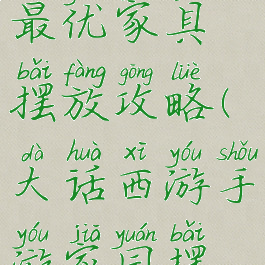 最优家具
bǎi fàng gōng lüè
摆放攻略(
dà huà xī yóu shǒu
大话西游手
yóu jiā yuán bǎi
游家园摆